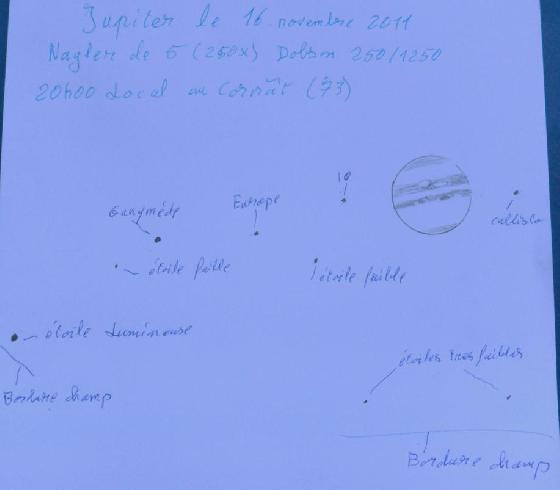 Jupiter le 16 novembre 2011
Nagler de 5 (250x) Dobson 250/1250
20h00 Local au Cormât (73)
Io
Ganymède
Europe
callisto
étoile faible
étoile faible
étoile lumineuse
étoiles très faibles
Bordure champ
Bordure champ